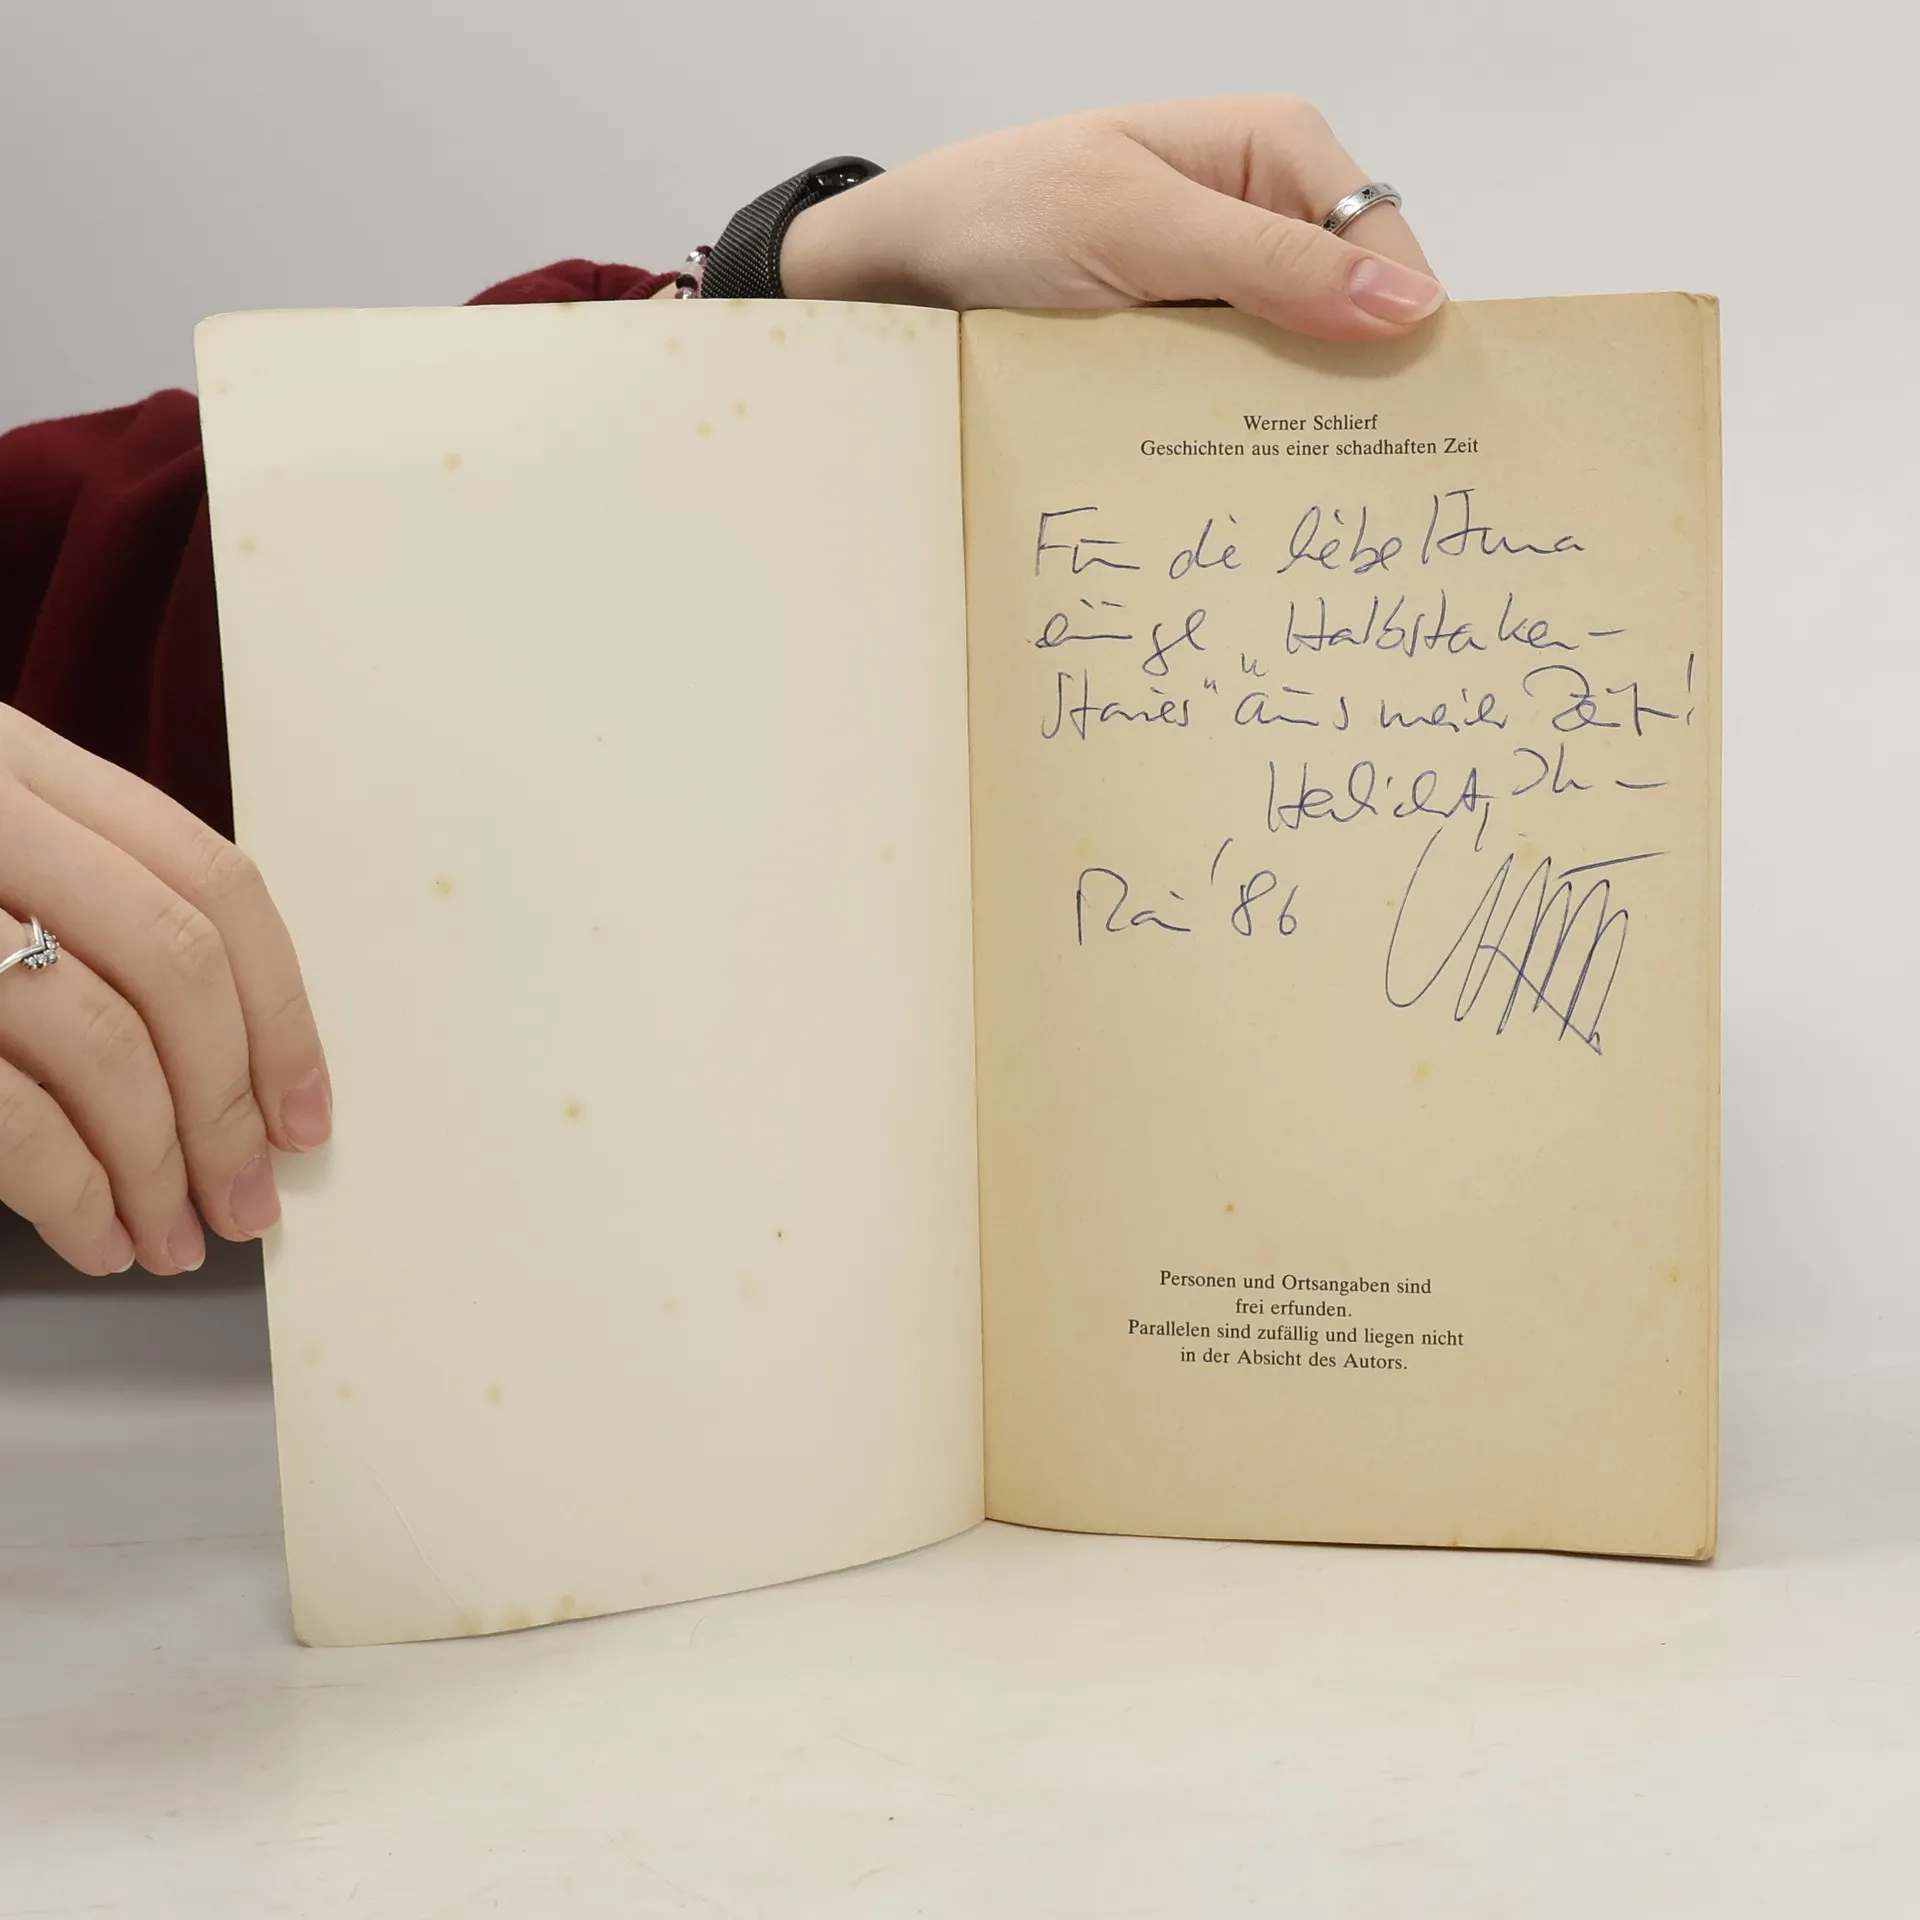 Werner Schlierf
Geschichten aus einer schadhaften Zeit
Für die liebe
einige „Halbstarken-
Stories“ aus meiner Zeit!
Herzlichst, Ihr
Mai '86
Personen und Ortsangaben sind
frei erfunden.
Parallelen sind zufällig und liegen nicht
in der Absicht des Autors.